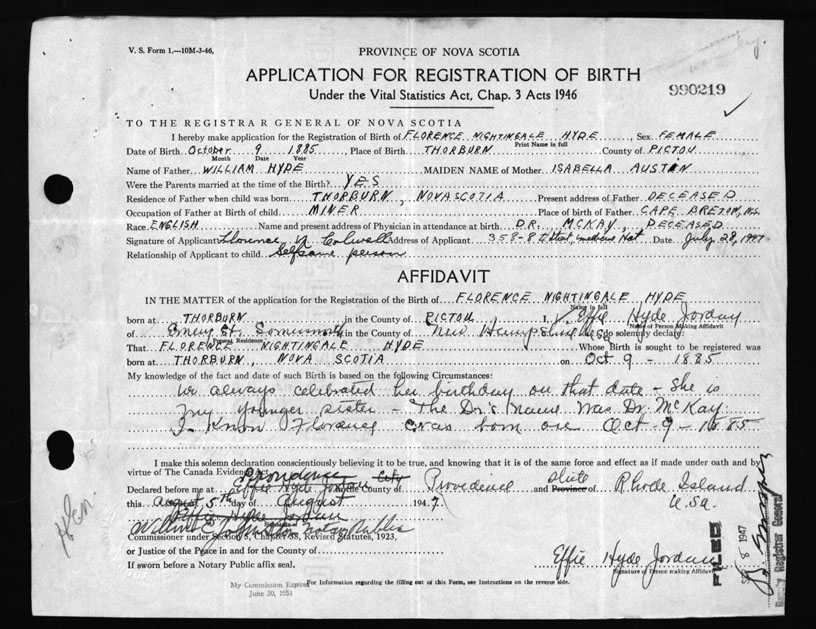 V. S. Form 1.—10M-3-46.
PROVINCE OF NOVA SCOTIA
APPLICATION FOR REGISTRATION OF BIRTH
Under the Vital Statistics Act, Chap. 3 Acts 1946
990219
TO THE REGISTRAR GENERAL OF NOVA SCOTIA
I hereby make application for the Registration of Birth of FLORENCE NIGHTINGALE HYDE, Sex FEMALE
Print Name in full
Date of Birth October 9 1885, Place of Birth THORBURN County of PICTOU
Month Date Year
Name of Father WILLIAM HYDE MAIDEN NAME of Mother ISABELLA AUSTIN
Were the Parents married at the time of the Birth? YES
Residence of Father when child was born THORBURN, NOVA SCOTIA Present address of Father DECEASED
Occupation of Father at Birth of child MINER Place of birth of Father CAPE BRETON, N.S.
Race ENGLISH Name and present address of Physician in attendance at birth DR. MCKAY, DECEASED
Signature of Applicant Florence N Colwell Address of Applicant 358-8th Street, Medicine Hat Date July 28, 1947
Relationship of Applicant to child Selfsame person
AFFIDAVIT
IN THE MATTER of the application for the Registration of the Birth of FLORENCE NIGHTINGALE HYDE
Name in full
born at THORBURN in the County of PICTOU I, Effie Hyde Jordan
Name of Person Making Affidavit
of Emery St. Somersworth in the County of New Hampshire USa do solemnly declare:
Present Residence
That FLORENCE NIGHTINGALE HYDE Whose Birth is sought to be registered was
born at THORBURN, NOVA SCOTIA on Oct 9 - 1885
My knowledge of the fact and date of such Birth is based on the following Circumstances:
We always celebrated her birthday on that date - She is
my younger sister - The Dr's Name was Dr. McKay
I Know Florence was born on Oct - 9 - 1885
I make this solemn declaration conscientiously believing it to be true, and knowing that it is of the same force and effect as if made under oath and by
virtue of The Canada Evidence Act.
Providence City
Declared before me at Effie Hyde Jordan in the County of Providence and State Province of Rhode Island
this August 5th day of August 1947. U.Sa.
Effie Hyde Jordan
Notary Public
Commissioner under Section 5, Chapter 38, Revised Statutes, 1923,
or Justice of the Peace in and for the County of
If sworn before a Notary Public affix seal.
Effie Hyde Jordan
Signature of Person making Affidavit
My Commission Expires
June 30, 1951
For information regarding the filling out of this Form, see Instructions on the reverse side.
FILED
8 1947
Deputy Registrar General